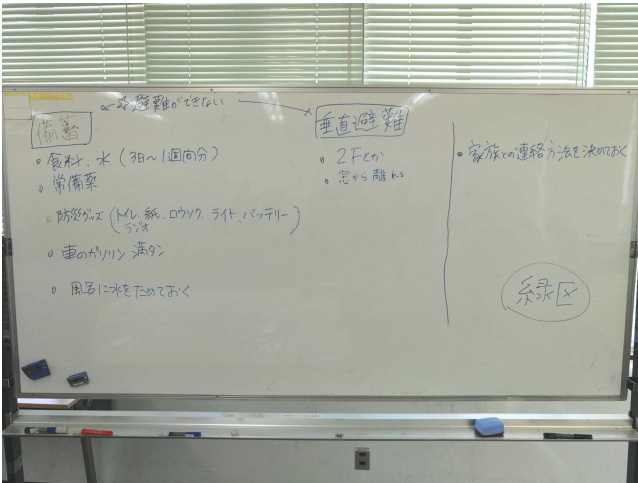 避難ができない
備蓄
・食料、水（3日〜1週間分）
・常備薬
・防災グッズ（トイレ、紙、ロウソク、ライト、バッテリー）
ラジオ
・車のガソリン満タン
・風呂に水をためておく
垂直避難
・2Fとか
・窓から離れる
・家族との連絡方法を決めておく
緑区